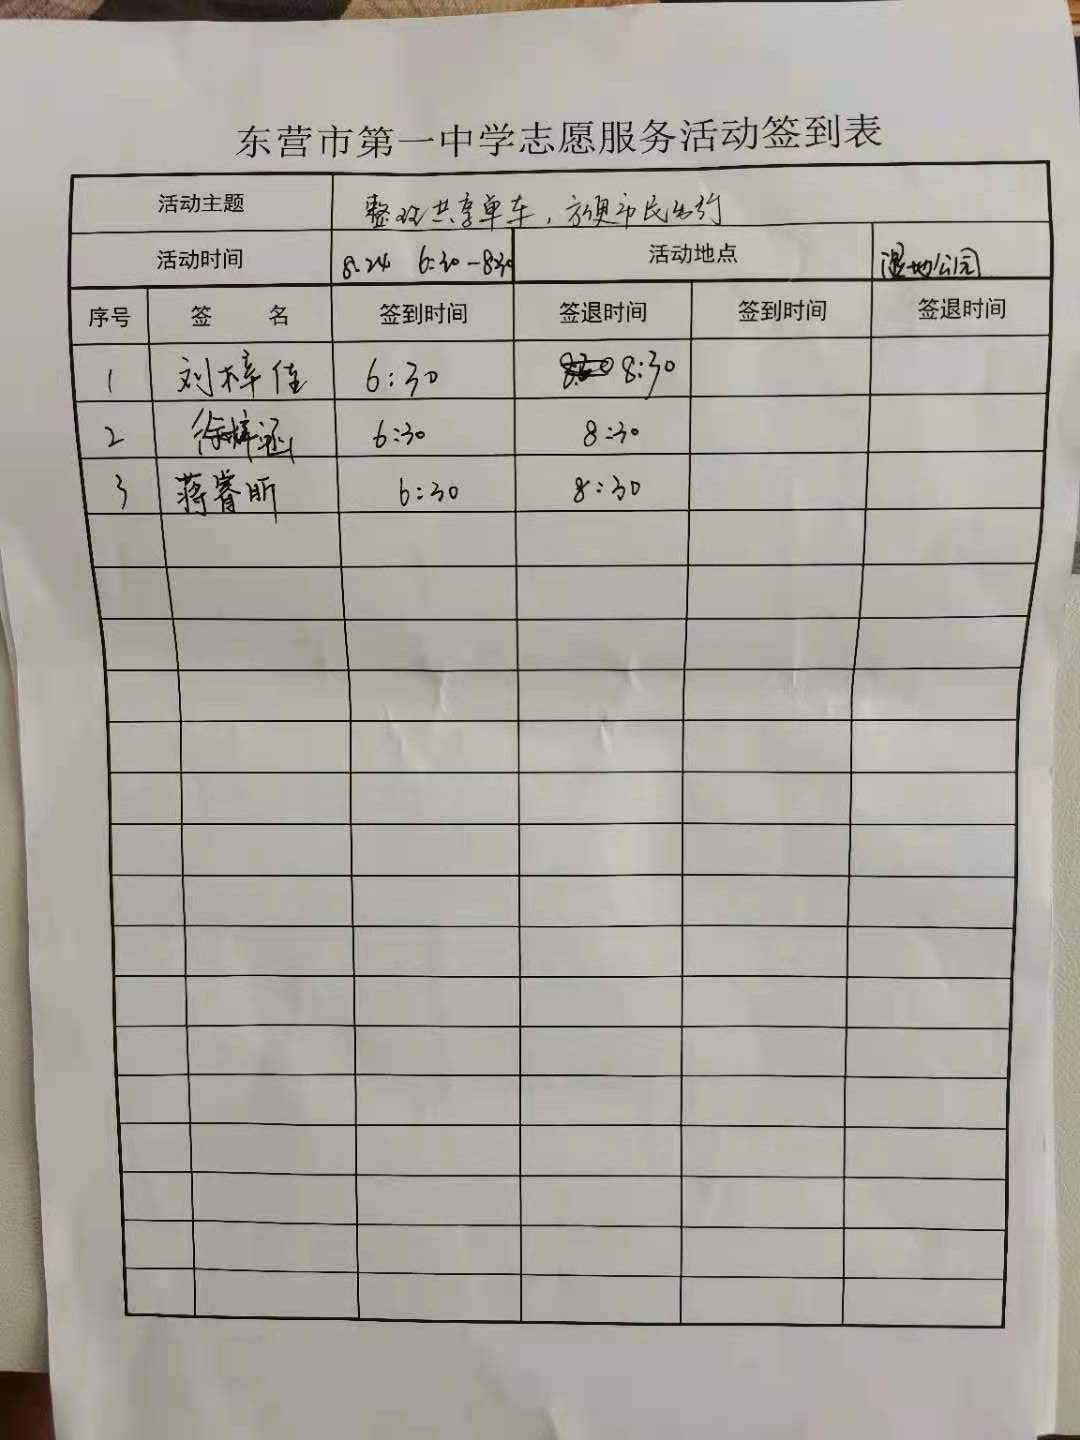 东营市第一中学志愿服务活动签到表
活动主题 整改共享单车，方便市民出行
活动时间 8.24 6:30-8:30 活动地点 湿地公园
序号 签 名 签到时间 签退时间 签到时间 签退时间
1 刘梓佳 6:30 8:30
2 徐梓涵 6:30 8:30
3 蒋睿昕 6:30 8:30